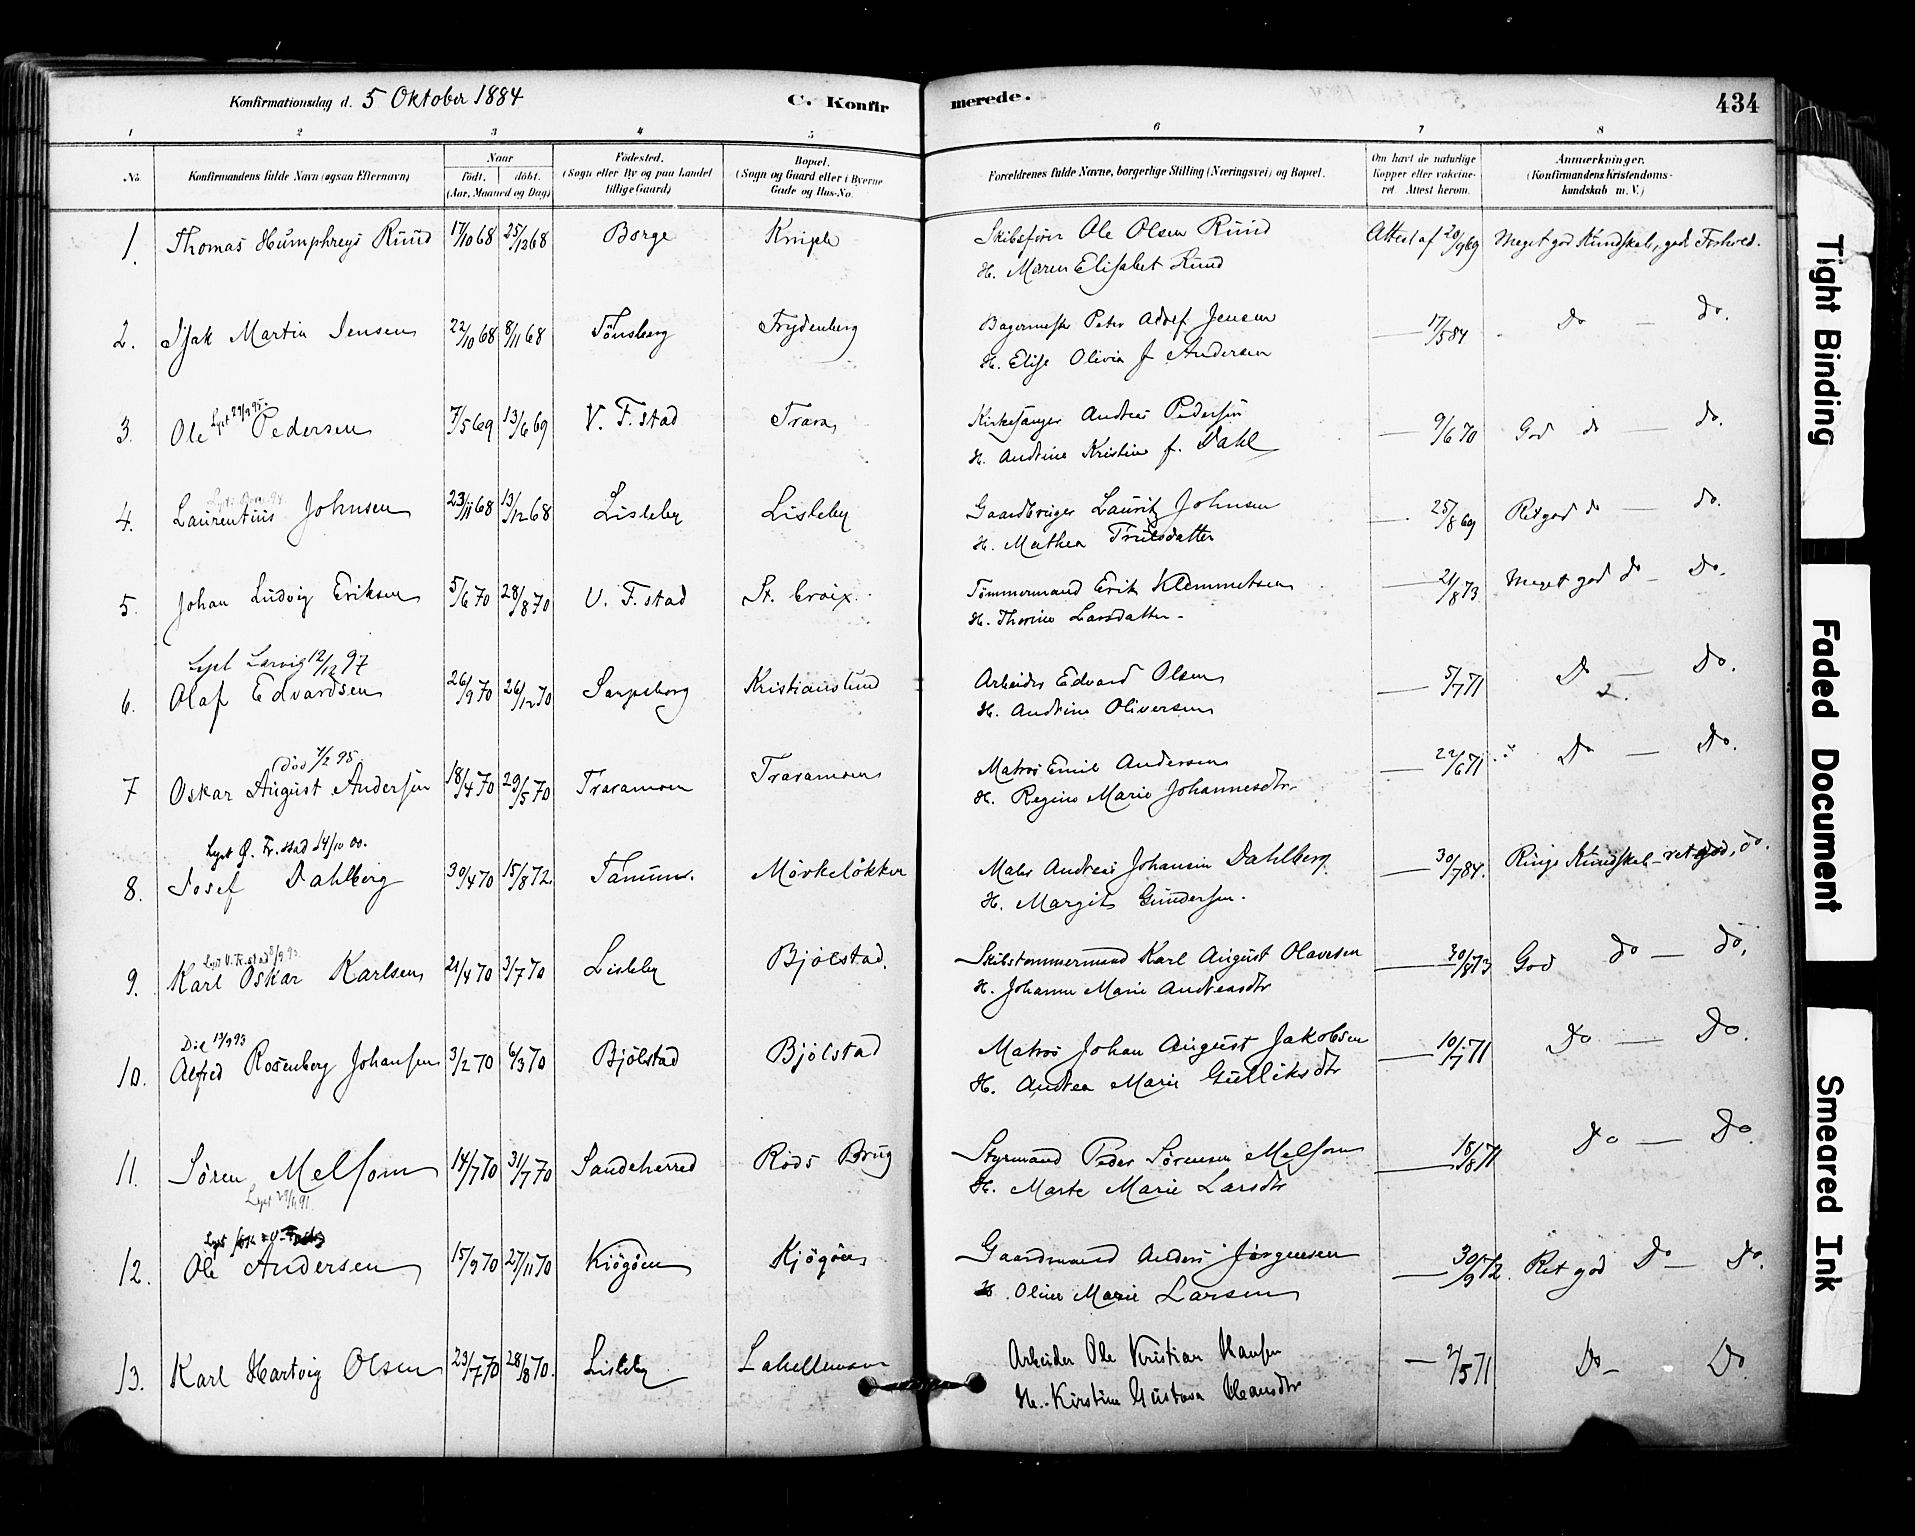 Konfirmationsdag d. 5 Oktober 1884 C. Konfirmerede. 434
1 2 3 4 5 6 7 8
No. Konfirmandens fulde Navn (ogsaa Efternavn) Naar født, døbt. (Aar, Maaned og Dag) Fødested. (Sogn eller By og paa Landet tillige Gaard) Bopæl. (Sogn og Gaard eller i Byerne Gade og Hus-No. Forældrenes fulde Navne, borgerlige Stilling (Næringsvei) og Bopæl. Om havt de naturlige Kopper eller vakcineret. Attest herom. Anmærkninger. (Konfirmandens Kristendomskundskab m. V.)
1. Thomas Humphreys Ruud 17/10 68 25/12 68 Borge Kniple Skibsfører Ole Olsen Ruud Attest af 20/9 69 Meget god Kundskab, god Forhold.
H. Maren Elisabet Ruud
2. Isak Martin Jensen 22/10 68 8/11 68 Tönsberg Frydenberg Bagermester Peter Adolf Jensen — 17/5 84 Do — Do.
H. Elise Olivia f. Andersen
Lyst 29/9 95.
3. Ole Pedersen 7/5 69 13/6 69 V. F.stad Trara Kirkesanger Andreas Pedersen — 9/6 70 God do — do.
H. Andrine Kristine f. Dahl
4. Laurentius Johnsen 23/11 68 13/12 68 Lisleby Lisleby Gaardbruger Lauritz Johnsen — 25/8 69 Ret god do — do.
H. Mathea Trulsdatter
5. Johan Ludvig Eriksen 5/6 70 28/8 70 V. F.stad St. Croix. Tømmermand Erik Klemmetsen — 21/8 73 Meget god do — Do.
H. Thorine Larsdatter.
Lyst Larvig 12/12 97
6. Olaf Edvardsen 26/9 70 26/12 70 Sarpsborg Kristianslund Arbeider Edvard Olsen — 5/7 71 Do — Do.
H. Andrine Oliversen
(död 7/2 95.
7 Oskar August Andersen 18/4 70 29/5 70 Traramoen Traramoen Matros Emil Andersen — 22/6 71 Do — Do.
H. Regine Marie Johannesdtr.
Lyst Ø. Fr.stad 14/10 00.
8. Josef Dahlberg 30/4 70 15/8 72. Tanum. Mörkelökken Maler Andreas Johansen Dahlberg — 30/7 84. Ringe Kundskab — ret god, do.
H. Margit Gundersen.
Lyst V. Fr.stad 8/9 93.
9. Karl Oskar Karlsen 21/4 70 3/7 70 Lisleby Bjølstad. Skibstømmermand Karl August Olavesen — 30/8 73 God do — do,
H. Johanne Marie Andreasdtr
Död 13/9 93
10. Alfred Rosenberg Johansen 3/2 70 6/3 70 Bjölstad Bjölstad Matros Johan August Jakobsen — 10/7 71 Do — Do.
H. Andrea Marie Gulliksdtr
11. Søren Melsom 14/7 70 31/7 70 Sandeherred Röds Brug Styrmand Peder Sørensen Melsom — 15/8 71 Do — Do.
H. Marte Marie Larsdtr
Lyst
12. Ole Andersen 15/9 70 27/11 70 Kjögöen Kjögöen Gaardmand Anders Jørgensen — 30/9 72. Ret god Do — Do.
H. Oline Marie Larsen
13. Karl Hartvig Olsen 23/7 70 28/8 70. Lisleby Lahellmoen Arbeider Ole Kristian Hansen — 2/5 71 Do — Do
H. Kirstine Gustava
Tight Binding
Faded Document
Smeared Ink